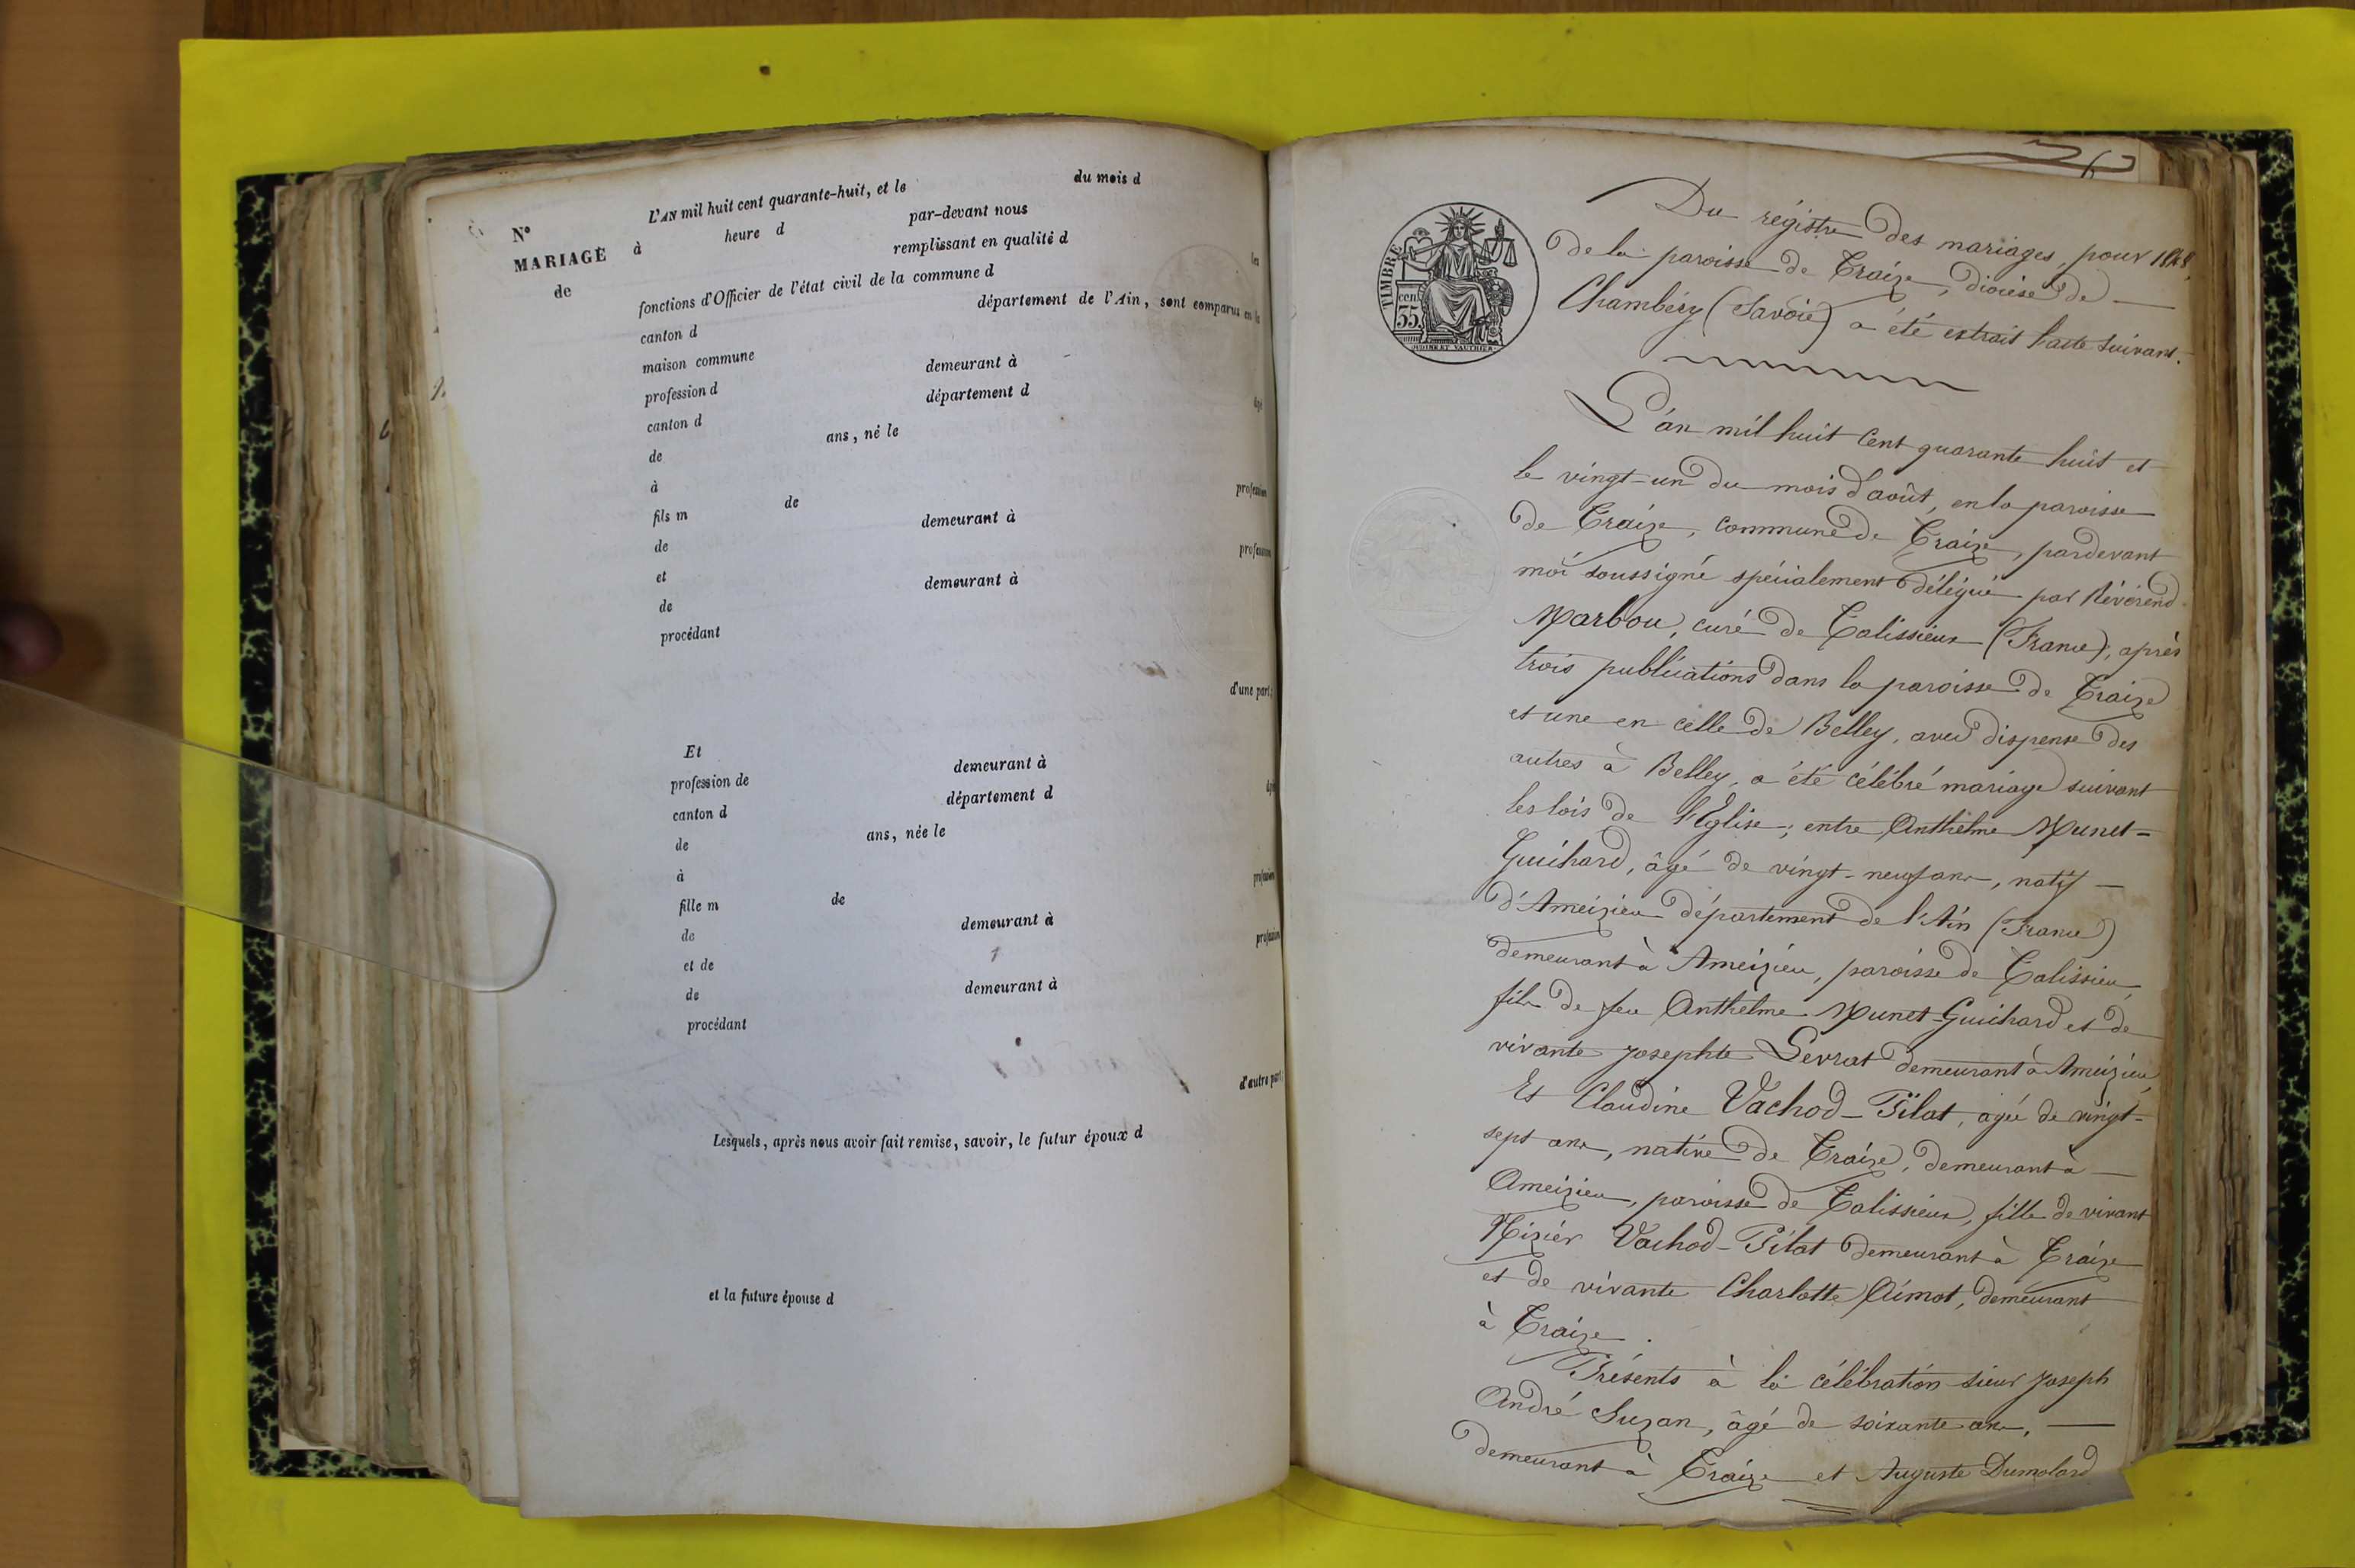 N°
MARIAGE
de
L'AN mil huit cent quarante-huit, et le du mois d
à heure d par-devant nous
remplissant en qualité d les
fonctions d'Officier de l'état civil de la commune d
canton d département de l'Ain, sont comparus en la
maison commune
profession d demeurant à
canton d département d
de ans, né le
à
fils m de profession
de demeurant à
et profession
de demeurant à
procédant
d'une part;
Et
profession de demeurant à
canton d département d
de ans, née le
à
fille m de profession
de demeurant à
et de profession
de demeurant à
procédant
d'autre part;
Lesquels, après nous avoir fait remise, savoir, le futur époux d
et la future épouse d
TIMBRE
35 cen
Du régistre des mariages, pour 1848,
de la paroisse de Traize, diocèse de
Chambéry (Savoie) a été extrait l'acte suivant.
L'an mil huit Cent quarante huit et
le vingt-un du mois d'août, en la paroisse
de Traize, commune de Traize, pardevant
moi soussigné spécialement délégué par Révérend
Marbou, curé de Talissieux (France), après
trois publications dans la paroisse de Traize
et une en celle de Belley, avec dispense des
autres à Belley, a été célébré mariage suivant
les lois de l'Eglise; entre Anthelme Munet-
Guichard, âgé de vingt-neuf ans, natif
d'Ameizieu département de l'Ain (France)
demeurant à Ameizieu, paroisse de Talissieu,
fils de feu Anthelme Munet-Guichard et de
vivante Josephte Serrat demeurant à Ameizieu,
Et Claudine Vachod-Pilat, agée de vingt-
sept ans, native de Traize, demeurant à
Ameizieu, paroisse de Talissieux, fille de vivant
Nizier Vachod-Pilat demeurant à Traize
et de vivante Charlotte Aimot, demeurant
à Traize.
Présents à la célébration sieur Joseph
André Suzan, âgé de soixante ans,
demeurant à Traize et Auguste Dumolard